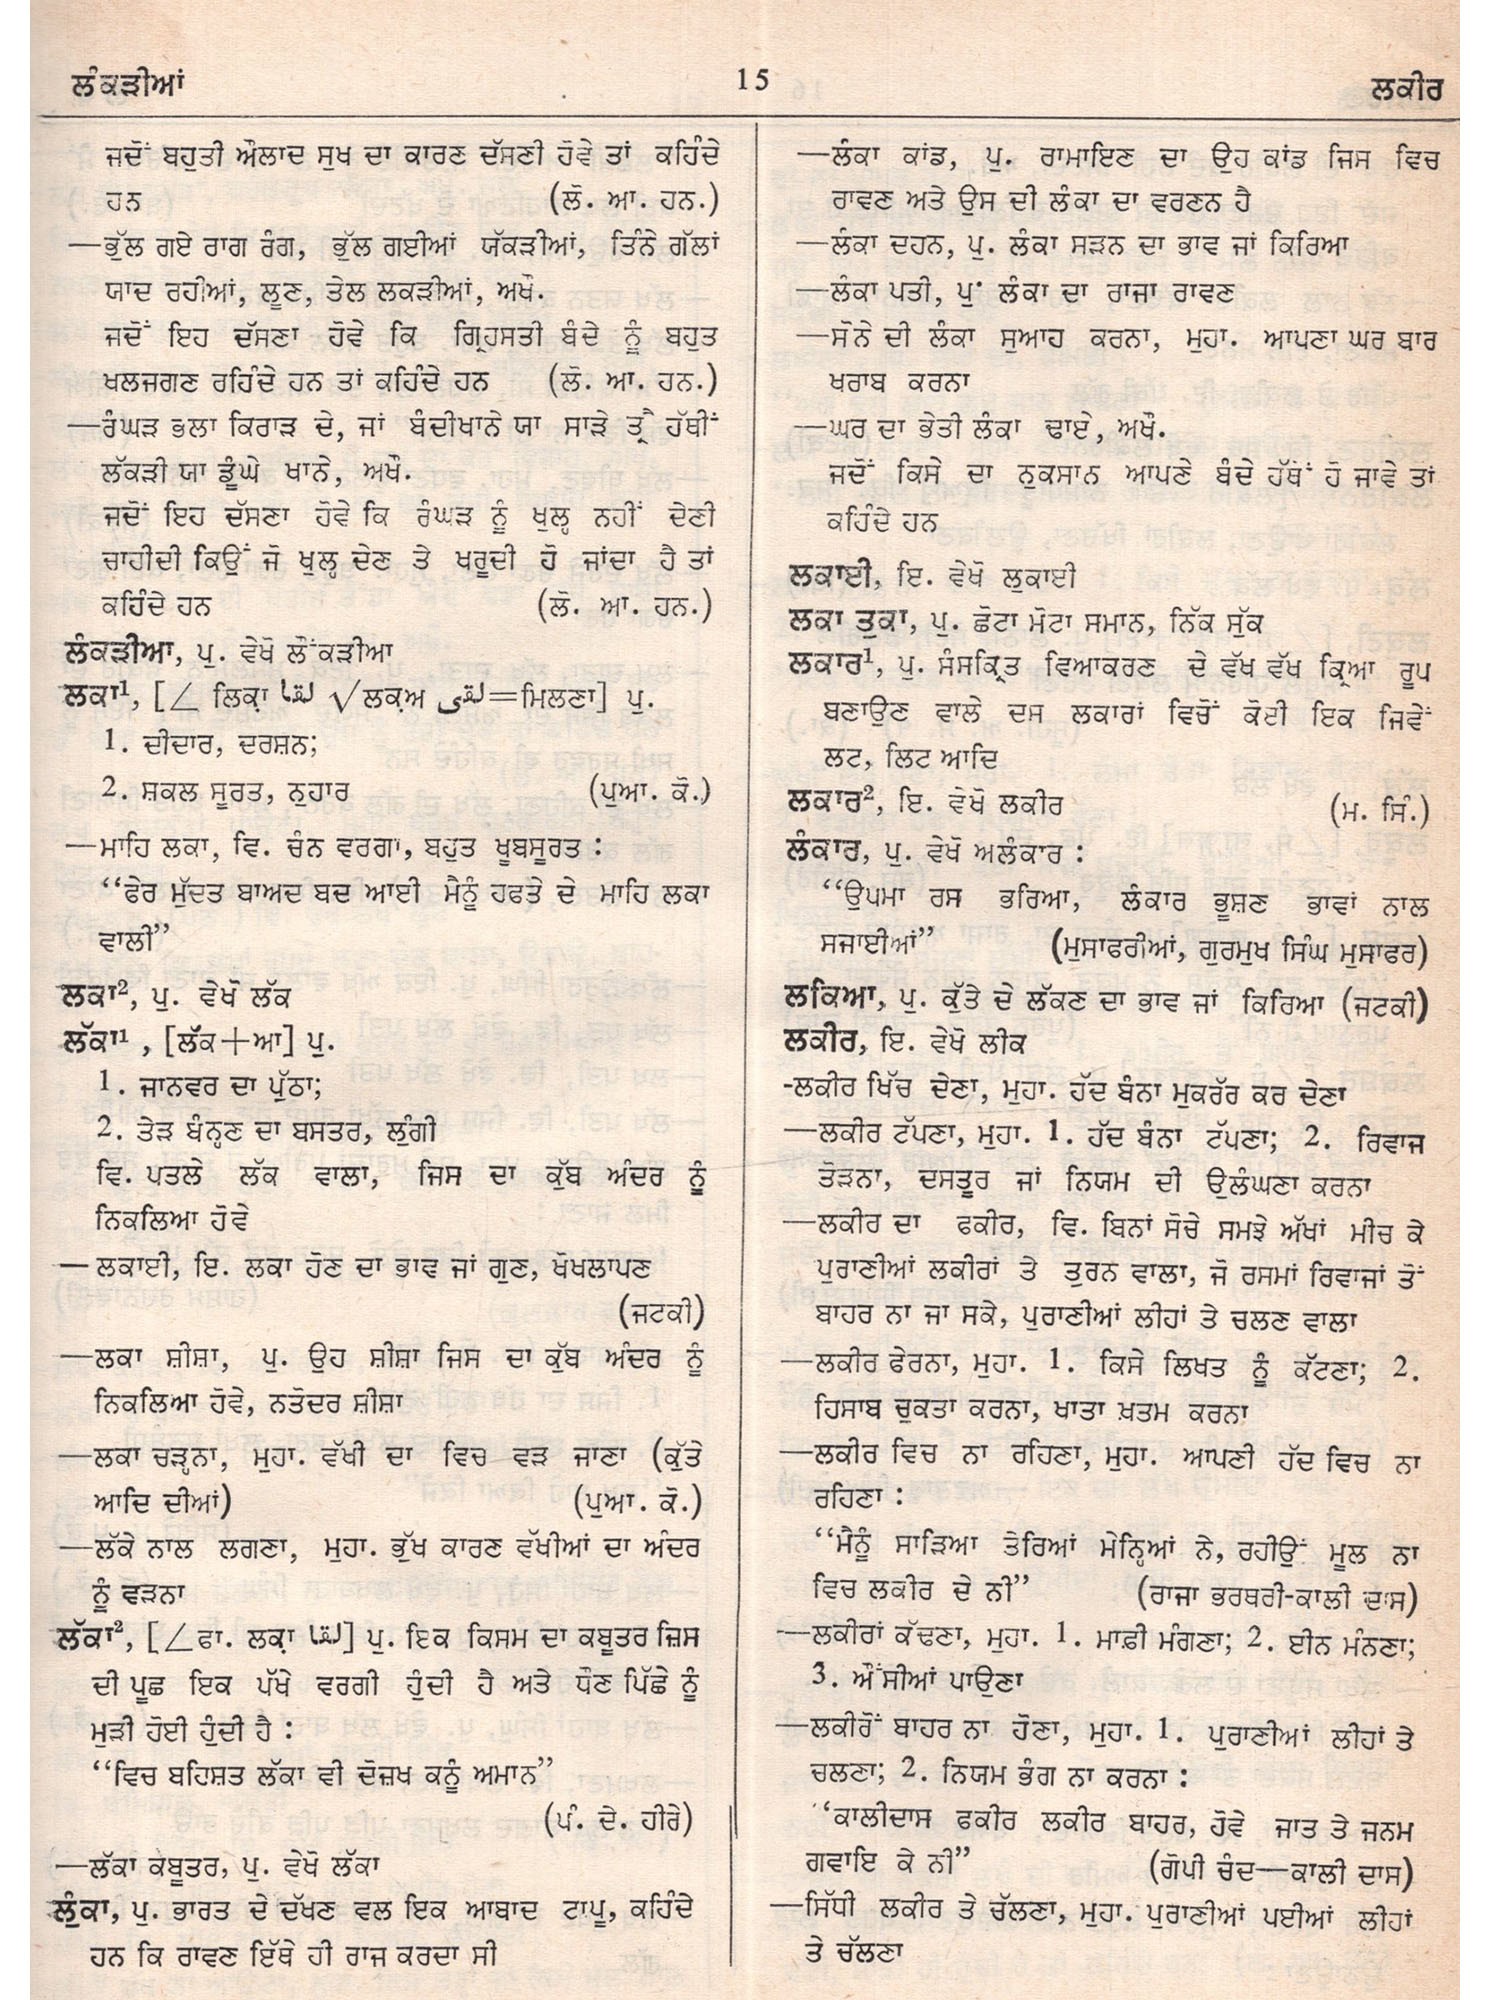 ਲੰਕੜੀਆਂ
15
ਲਕੀਰ
ਜਦੋਂ ਬਹੁਤੀ ਔਲਾਦ ਸੁਖ ਦਾ ਕਾਰਣ ਦੱਸਣੀ ਹੋਵੇ ਤਾਂ ਕਹਿੰਦੇ
ਹਨ (ਲੋ. ਆ. ਹਨ.)
—ਭੁੱਲ ਗਏ ਰਾਗ ਰੰਗ, ਭੁੱਲ ਗਈਆਂ ਯੱਕੜੀਆਂ, ਤਿੰਨੇ ਗੱਲਾਂ
ਯਾਦ ਰਹੀਆਂ, ਲੂਣ, ਤੇਲ ਲਕੜੀਆਂ, ਅਖੌ.
ਜਦੋਂ ਇਹ ਦੱਸਣਾ ਹੋਵੇ ਕਿ ਗ੍ਰਿਹਸਤੀ ਬੰਦੇ ਨੂੰ ਬਹੁਤ
ਖਲਜਗਣ ਰਹਿੰਦੇ ਹਨ ਤਾਂ ਕਹਿੰਦੇ ਹਨ (ਲੋ. ਆ. ਹਨ.)
—ਰੰਘੜ ਭਲਾ ਕਿਰਾੜ ਦੇ, ਜਾਂ ਬੰਦੀਖਾਨੇ ਯਾ ਸਾੜੇ ਤ੍ਰੈ ਹੱਥੀਂ
ਲੱਕੜੀ ਯਾ ਡੂੰਘੇ ਖਾਨੇ, ਅਖੌ.
ਜਦੋਂ ਇਹ ਦੱਸਣਾ ਹੋਵੇ ਕਿ ਰੰਘੜ ਨੂੰ ਖੁਲ੍ਹ ਨਹੀਂ ਦੇਣੀ
ਚਾਹੀਦੀ ਕਿਉਂ ਜੋ ਖੁਲ੍ਹ ਦੇਣ ਤੇ ਖਰੂਦੀ ਹੋ ਜਾਂਦਾ ਹੈ ਤਾਂ
ਕਹਿੰਦੇ ਹਨ (ਲੋ. ਆ. ਹਨ.)
ਲੰਕੜੀਆ, ਪੁ. ਵੇਖੋ ਲੌਂਕੜੀਆ
ਲਕਾ¹, [∠ ਲਿਕ਼ਾ لقا √ਲਕ਼ਅ لقی=ਮਿਲਣਾ] ਪੁ.
1. ਦੀਦਾਰ, ਦਰਸ਼ਨ;
2. ਸ਼ਕਲ ਸੂਰਤ, ਨੁਹਾਰ (ਪੁਆ. ਕੋ.)
—ਮਾਹਿ ਲਕਾ, ਵਿ. ਚੰਨ ਵਰਗਾ, ਬਹੁਤ ਖੂਬਸੂਰਤ :
“ਫੇਰ ਮੁੱਦਤ ਬਾਅਦ ਬਦ ਆਈ ਮੈਨੂੰ ਹਫਤੇ ਦੇ ਮਾਹਿ ਲਕਾ
ਵਾਲੀ”
ਲਕਾ², ਪੁ. ਵੇਖੋ ਲੱਕ
ਲੱਕਾ¹ , [ਲੱਕ+ਆ] ਪੁ.
1. ਜਾਨਵਰ ਦਾ ਪੁੱਠਾ;
2. ਤੇੜ ਬੰਨ੍ਹਣ ਦਾ ਬਸਤਰ, ਲੁੰਗੀ
ਵਿ. ਪਤਲੇ ਲੱਕ ਵਾਲਾ, ਜਿਸ ਦਾ ਕੁੱਬ ਅੰਦਰ ਨੂੰ
ਨਿਕਲਿਆ ਹੋਵੇ
— ਲਕਾਈ, ਇ. ਲਕਾ ਹੋਣ ਦਾ ਭਾਵ ਜਾਂ ਗੁਣ, ਖੋਖਲਾਪਣ
(ਜਟਕੀ)
—ਲਕਾ ਸ਼ੀਸ਼ਾ, ਪੁ. ਉਹ ਸ਼ੀਸ਼ਾ ਜਿਸ ਦਾ ਕੁੱਬ ਅੰਦਰ ਨੂੰ
ਨਿਕਲਿਆ ਹੋਵੇ, ਨਤੋਦਰ ਸ਼ੀਸ਼ਾ
—ਲਕਾ ਚੜ੍ਹਨਾ, ਮੁਹਾ. ਵੱਖੀ ਦਾ ਵਿਚ ਵੜ ਜਾਣਾ (ਕੁੱਤੇ
ਆਦਿ ਦੀਆਂ) (ਪੁਆ. ਕੋ.)
—ਲੱਕੇ ਨਾਲ ਲਗਣਾ, ਮੁਹਾ. ਭੁੱਖ ਕਾਰਣ ਵੱਖੀਆਂ ਦਾ ਅੰਦਰ
ਨੂੰ ਵੜਨਾ
ਲੱਕਾ², [∠ਫਾ. ਲਕ਼ਾ لقا] ਪੁ. ਇਕ ਕਿਸਮ ਦਾ ਕਬੂਤਰ ਜਿਸ
ਦੀ ਪੂਛ ਇਕ ਪੱਖੇ ਵਰਗੀ ਹੁੰਦੀ ਹੈ ਅਤੇ ਧੌਣ ਪਿੱਛੇ ਨੂੰ
ਮੁੜੀ ਹੋਈ ਹੁੰਦੀ ਹੈ :
“ਵਿਚ ਬਹਿਸ਼ਤ ਲੱਕਾ ਵੀ ਦੋਜ਼ਖ ਕਨੂੰ ਅਮਾਨ”
(ਪੰ. ਦੇ. ਹੀਰੇ)
—ਲੱਕਾ ਕਬੂਤਰ, ਪੁ. ਵੇਖੋ ਲੱਕਾ
ਲੰਕਾ, ਪੁ. ਭਾਰਤ ਦੇ ਦੱਖਣ ਵਲ ਇਕ ਆਬਾਦ ਟਾਪੂ, ਕਹਿੰਦੇ
ਹਨ ਕਿ ਰਾਵਣ ਇੱਥੇ ਹੀ ਰਾਜ ਕਰਦਾ ਸੀ
—ਲੰਕਾ ਕਾਂਡ, ਪੁ. ਰਾਮਾਇਣ ਦਾ ਉਹ ਕਾਂਡ ਜਿਸ ਵਿਚ
ਰਾਵਣ ਅਤੇ ਉਸ ਦੀ ਲੰਕਾ ਦਾ ਵਰਣਨ ਹੈ
—ਲੰਕਾ ਦਹਨ, ਪੁ. ਲੰਕਾ ਸੜਨ ਦਾ ਭਾਵ ਜਾਂ ਕਿਰਿਆ
—ਲੰਕਾ ਪਤੀ, ਪੁ. ਲੰਕਾ ਦਾ ਰਾਜਾ ਰਾਵਣ
—ਸੋਨੇ ਦੀ ਲੰਕਾ ਸੁਆਹ ਕਰਨਾ, ਮੁਹਾ. ਆਪਣਾ ਘਰ ਬਾਰ
ਖਰਾਬ ਕਰਨਾ
—ਘਰ ਦਾ ਭੇਤੀ ਲੰਕਾ ਢਾਏ, ਅਖੌ.
ਜਦੋਂ ਕਿਸੇ ਦਾ ਨੁਕਸਾਨ ਆਪਣੇ ਬੰਦੇ ਹੱਥੋਂ ਹੋ ਜਾਵੇ ਤਾਂ
ਕਹਿੰਦੇ ਹਨ
ਲਕਾਈ, ਇ. ਵੇਖੋ ਲੁਕਾਈ
ਲਕਾ ਤੁਕਾ, ਪੁ. ਛੋਟਾ ਮੋਟਾ ਸਮਾਨ, ਨਿੱਕ ਸੁੱਕ
ਲਕਾਰ¹, ਪੁ. ਸੰਸਕ੍ਰਿਤ ਵਿਆਕਰਣ ਦੇ ਵੱਖ ਵੱਖ ਕ੍ਰਿਆ ਰੂਪ
ਬਣਾਉਣ ਵਾਲੇ ਦਸ ਲਕਾਰਾਂ ਵਿਚੋਂ ਕੋਈ ਇਕ ਜਿਵੇਂ
ਲਟ, ਲਿਟ ਆਦਿ
ਲਕਾਰ², ਇ. ਵੇਖੋ ਲਕੀਰ (ਮ. ਸਿੰ.)
ਲੰਕਾਰ, ਪੁ. ਵੇਖੋ ਅਲੰਕਾਰ :
“ਉਪਮਾ ਰਸ ਭਰਿਆ, ਲੰਕਾਰ ਭੂਸ਼ਣ ਭਾਵਾਂ ਨਾਲ
ਸਜਾਈਆਂ” (ਮੁਸਾਫਰੀਆਂ, ਗੁਰਮੁਖ ਸਿੰਘ ਮੁਸਾਫਰ)
ਲਕਿਆ, ਪੁ. ਕੁੱਤੇ ਦੇ ਲੱਕਣ ਦਾ ਭਾਵ ਜਾਂ ਕਿਰਿਆ (ਜਟਕੀ)
ਲਕੀਰ, ਇ. ਵੇਖੋ ਲੀਕ
-ਲਕੀਰ ਖਿੱਚ ਦੇਣਾ, ਮੁਹਾ. ਹੱਦ ਬੰਨਾ ਮੁਕਰੱਰ ਕਰ ਦੇਣਾ
—ਲਕੀਰ ਟੱਪਣਾ, ਮੁਹਾ. 1. ਹੱਦ ਬੰਨਾ ਟੱਪਣਾ; 2. ਰਿਵਾਜ
ਤੋੜਨਾ, ਦਸਤੂਰ ਜਾਂ ਨਿਯਮ ਦੀ ਉਲੰਘਣਾ ਕਰਨਾ
—ਲਕੀਰ ਦਾ ਫਕੀਰ, ਵਿ. ਬਿਨਾਂ ਸੋਚੇ ਸਮਝੇ ਅੱਖਾਂ ਮੀਚ ਕੇ
ਪੁਰਾਣੀਆਂ ਲਕੀਰਾਂ ਤੇ ਤੁਰਨ ਵਾਲਾ, ਜੋ ਰਸਮਾਂ ਰਿਵਾਜਾਂ ਤੋਂ
ਬਾਹਰ ਨਾ ਜਾ ਸਕੇ, ਪੁਰਾਣੀਆਂ ਲੀਹਾਂ ਤੇ ਚਲਣ ਵਾਲਾ
—ਲਕੀਰ ਫੇਰਨਾ, ਮੁਹਾ. 1. ਕਿਸੇ ਲਿਖਤ ਨੂੰ ਕੱਟਣਾ; 2.
ਹਿਸਾਬ ਚੁਕਤਾ ਕਰਨਾ, ਖਾਤਾ ਖ਼ਤਮ ਕਰਨਾ
—ਲਕੀਰ ਵਿਚ ਨਾ ਰਹਿਣਾ, ਮੁਹਾ. ਆਪਣੀ ਹੱਦ ਵਿਚ ਨਾ
ਰਹਿਣਾ :
“ਮੈਨੂੰ ਸਾੜਿਆ ਤੇਰਿਆਂ ਮੇਨ੍ਹਿਆਂ ਨੇ, ਰਹੀਉਂ ਮੂਲ ਨਾ
ਵਿਚ ਲਕੀਰ ਦੇ ਨੀ” (ਰਾਜਾ ਭਰਥਰੀ-ਕਾਲੀ ਦਾਸ)
—ਲਕੀਰਾਂ ਕੱਢਣਾ, ਮੁਹਾ. 1. ਮਾਫ਼ੀ ਮੰਗਣਾ; 2. ਈਨ ਮੰਨਣਾ;
3. ਔਂਸੀਆਂ ਪਾਉਣਾ
—ਲਕੀਰੋਂ ਬਾਹਰ ਨਾ ਹੋਣਾ, ਮੁਹਾ. 1. ਪੁਰਾਣੀਆਂ ਲੀਹਾਂ ਤੇ
ਚਲਣਾ; 2. ਨਿਯਮ ਭੰਗ ਨਾ ਕਰਨਾ :
‘ਕਾਲੀਦਾਸ ਫਕੀਰ ਲਕੀਰ ਬਾਹਰ, ਹੋਵੇ ਜਾਤ ਤੇ ਜਨਮ
ਗਵਾਇ ਕੇ ਨੀ” (ਗੋਪੀ ਚੰਦ—ਕਾਲੀ ਦਾਸ)
—ਸਿੱਧੀ ਲਕੀਰ ਤੇ ਚੱਲਣਾ, ਮੁਹਾ. ਪੁਰਾਣੀਆਂ ਪਈਆਂ ਲੀਹਾਂ
ਤੇ ਚੱਲਣਾ